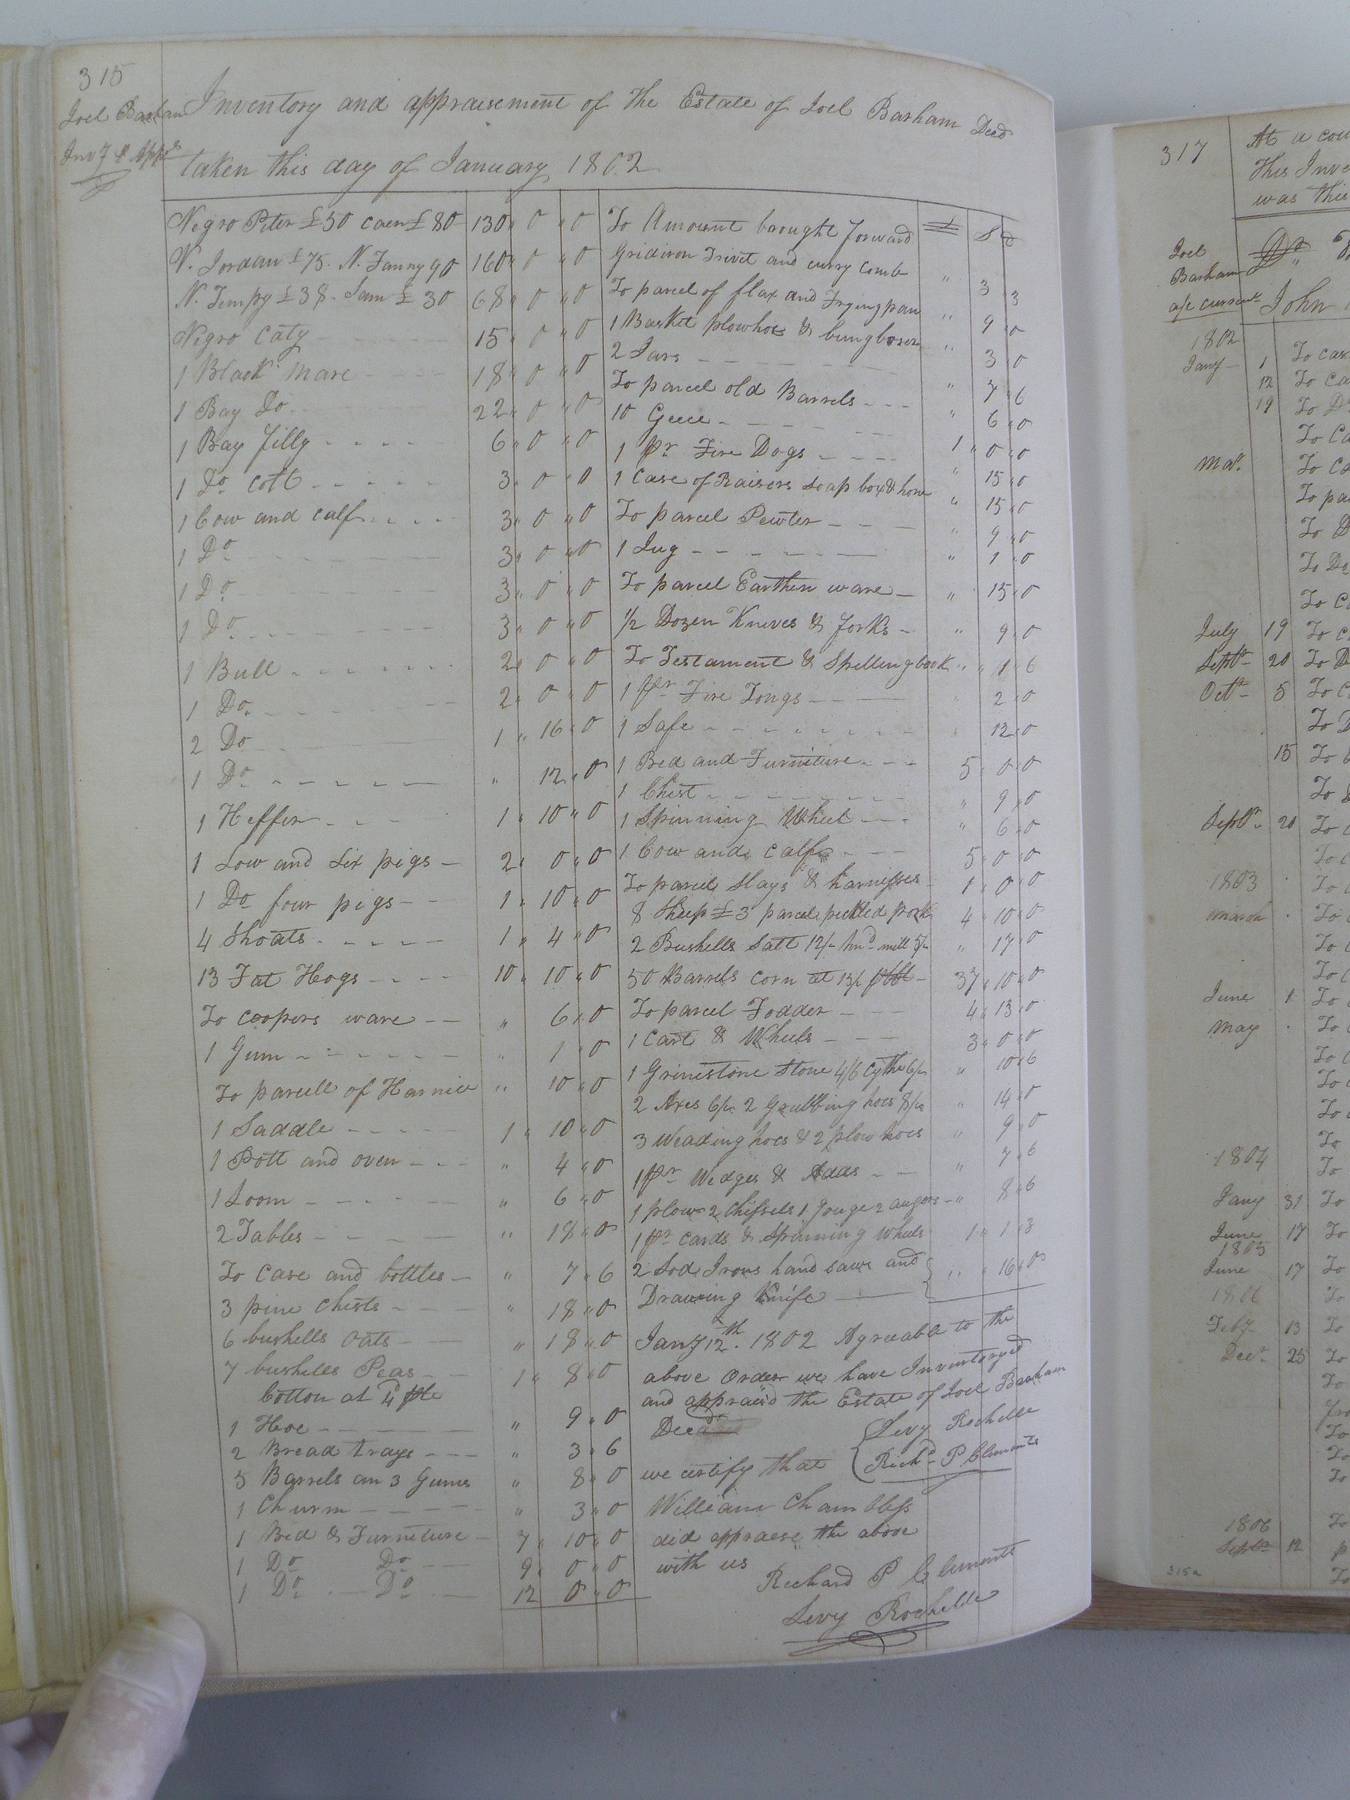 315
Joel Barham
Inv.y & App.t
Inventory and appraisement of the Estate of Joel Barham Decd
taken this day of January 1802
Negro Peter £50 caen £80 130 " 0 " 0
N. Jordan £75. N. Fanny 90 160 " 0 " 0
N. Tempy £38. Sam £30 68 " 0 " 0
Negro Caty 15 " 0 " 0
1 Black Mare 18 " 0 " 0
1 Bay Do. 22 " 0 " 0
1 Bay filly 6 " 0 " 0
1 Do. Colt 3 " 0 " 0
1 Cow and calf 3 " 0 " 0
1 Do 3 " 0 " 0
1 Do 3 " 0 " 0
1 Do 3 " 0 " 0
1 Bull 2 " 0 " 0
1 Do. 2 " 0 " 0
2 Do 1 " 16 " 0
1 Do. " 12 " 0
1 Heffer 1 " 10 " 0
1 Sow and Six pigs 2 " 0 " 0
1 Do four pigs 1 " 10 " 0
4 Shoats 1 " 4 " 0
13 Fat Hogs 10 " 10 " 0
To coopers ware " 6 " 0
1 Gum " 1 " 0
To parcell of Harnice " 10 " 0
1 Saddle 1 " 10 " 0
1 Pott and oven " 4 " 0
1 Loom " 6 " 0
2 Tables " 18 " 0
To Case and bottles " 7 " 6
3 pine Chests " 18 " 0
6 bushells Oats " 18 " 0
7 bushells Peas 1 " 8 " 0
Cotton at 4
1 Hoe " 9 " 0
2 Bread trays " 3 " 6
5 Barrels an 3 Gums " 8 " 0
1 Churn " 3 " 0
1 Bed & Furniture 7 " 10 " 0
1 Do Do 9 " 0 " 0
1 Do Do 12 " 0 " 0
To Amount brought forward £ S D
Gridiron Trivit and curry comb " 3 " 3
To parcel of flax and Fryingpan " 9 " 0
1 Basket plowhoe & bungborer " 3 " 0
2 Jars " 7 " 6
To parcel old Barrels " 6 " 0
10 Geese 1 " 0 " 0
1 pr Fire Dogs " 15 " 0
1 Case of Raisers Soap box & hone " 15 " 0
To parcel Pewter " 9 " 0
1 Jug " 1 " 0
To parcel Earthen ware " 15 " 0
1/2 Dozen Knives & forks " 9 " 0
To Testament & Spellingbook " 1 " 6
1 pr Fire Tongs " 2 " 0
1 Safe " 12 " 0
1 Bed and Furniture 5 " 0 " 0
1 Chest " 9 " 0
1 Spinning Wheel " 6 " 0
1 Cow and Calf 5 " 0 " 0
To parcel Slays & harnesses 1 " 0 " 0
8 Sheep £3 parcel pickled pork 4 " 10 " 0
2 Bushells Salt 12/- hnd mill 5/- " 17 " 0
50 Barrels corn at 15/ 37 " 10 " 0
To parcel Fodder 4 " 13 " 0
1 Cart & Wheels 3 " 0 " 0
1 Grinestone Stone 4/6 Cythe 6/- " 10 " 6
2 Axes 6/- 2 Grubbing hoes 8/- " 14 " 0
3 Weading hoes & 2 plow hoes " 9 " 0
1 pr Wedges & Adds " 7 " 6
1 plow 2 Chissels 1 Gouge 2 augers " 8 " 6
1 pr Cards & Spinning Wheels 1 " 1 " 3
2 Sod Irons hand saws and " 16 " 0
Drawing Knife
Jany 12th. 1802 Agreeable to the
above Order we have Inventoryed
and appraisd the Estate of Joel Barham
Decd
Levy Rochelle
Richd P Clements
we certify that
William Chambless
did appraese the above
with us
Richard P Clements
Levy Rochelle
317
At a cou
This Inve
was this
Joel
Barham
a/c current
Dr
John
1802
Jany 1 To cas
12 To Ca
19 To D
To Ca
Mar. To Ca
To pa
To D
To Do
To Ca
July 19 To C
Septr 20 To D
Octr 5 To C
To D
15 To
To
Septr. 20 To
To
1803 To
March To
To
To
June 1 To
May To
To
To
To
To
1804 To
Jany 31 To
June 17 To
1805
June 17 To
1806 To
Feby 13 To
Decr 25 To
To
To
To
To
1806 To
Septr 12
To
315a